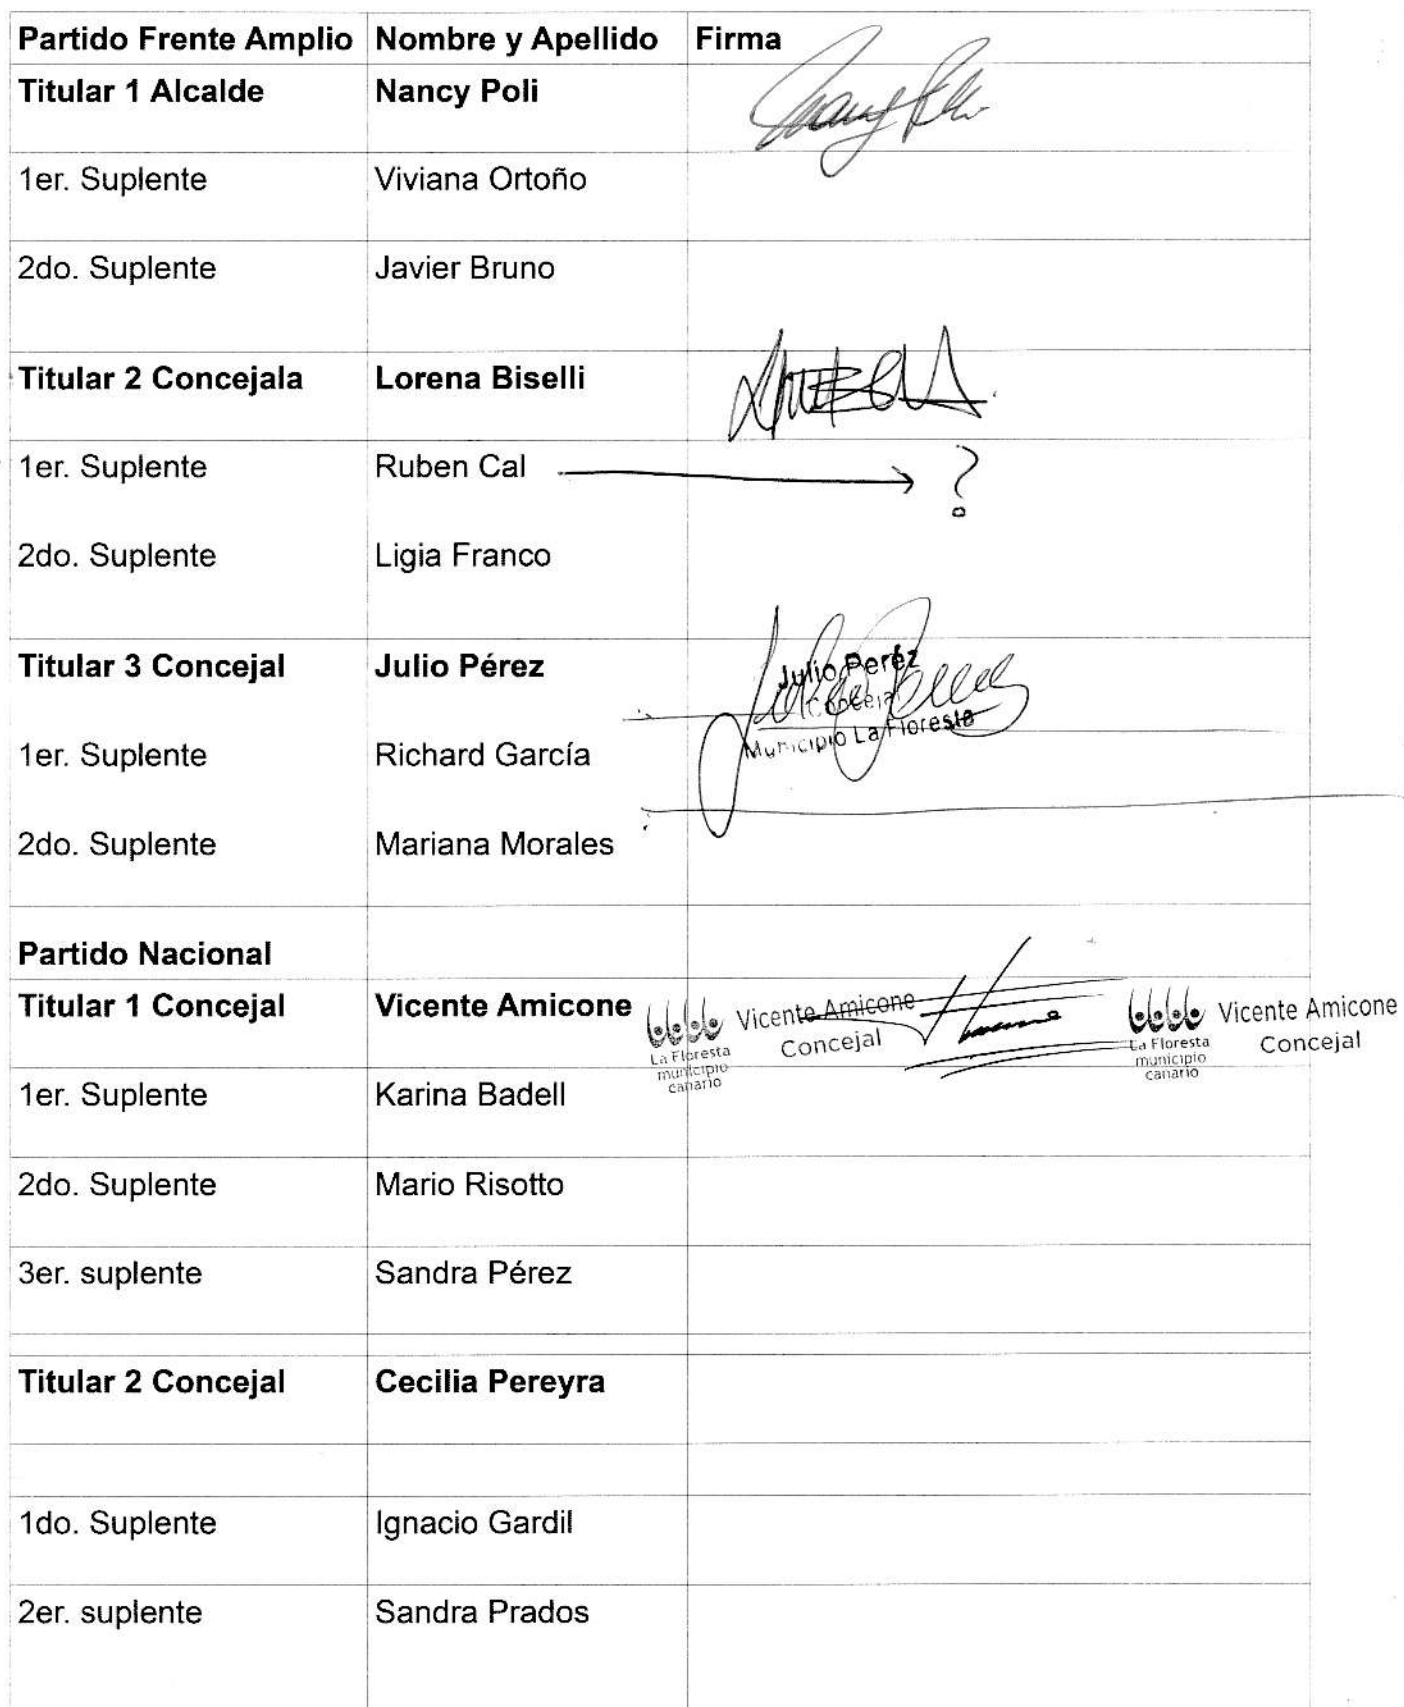 Partido Frente Amplio Nombre y Apellido Firma
Titular 1 Alcalde Nancy Poli
1er. Suplente Viviana Ortoño
2do. Suplente Javier Bruno
Titular 2 Concejala Lorena Biselli
1er. Suplente Ruben Cal ?
2do. Suplente Ligia Franco
Titular 3 Concejal Julio Pérez
Julio Peréz
Concejal
Municipio La Floresta
1er. Suplente Richard García
2do. Suplente Mariana Morales
Partido Nacional
Titular 1 Concejal Vicente Amicone
La Floresta
municipio
canario
Vicente Amicone
Concejal
La Floresta
municipio
canario
Vicente Amicone
Concejal
1er. Suplente Karina Badell
2do. Suplente Mario Risotto
3er. suplente Sandra Pérez
Titular 2 Concejal Cecilia Pereyra
1do. Suplente Ignacio Gardil
2er. suplente Sandra Prados